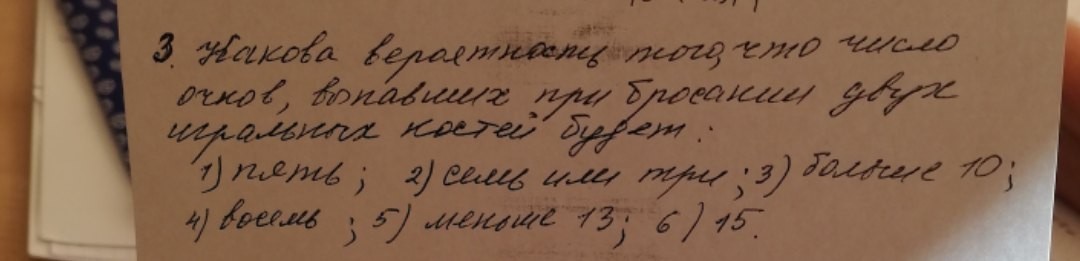 3. Какова вероятность того, что число
очков, выпавших при бросании двух
игральных костей будет:
1) пять; 2) семь или три; 3) больше 10;
4) восемь; 5) меньше 13; 6) 15.